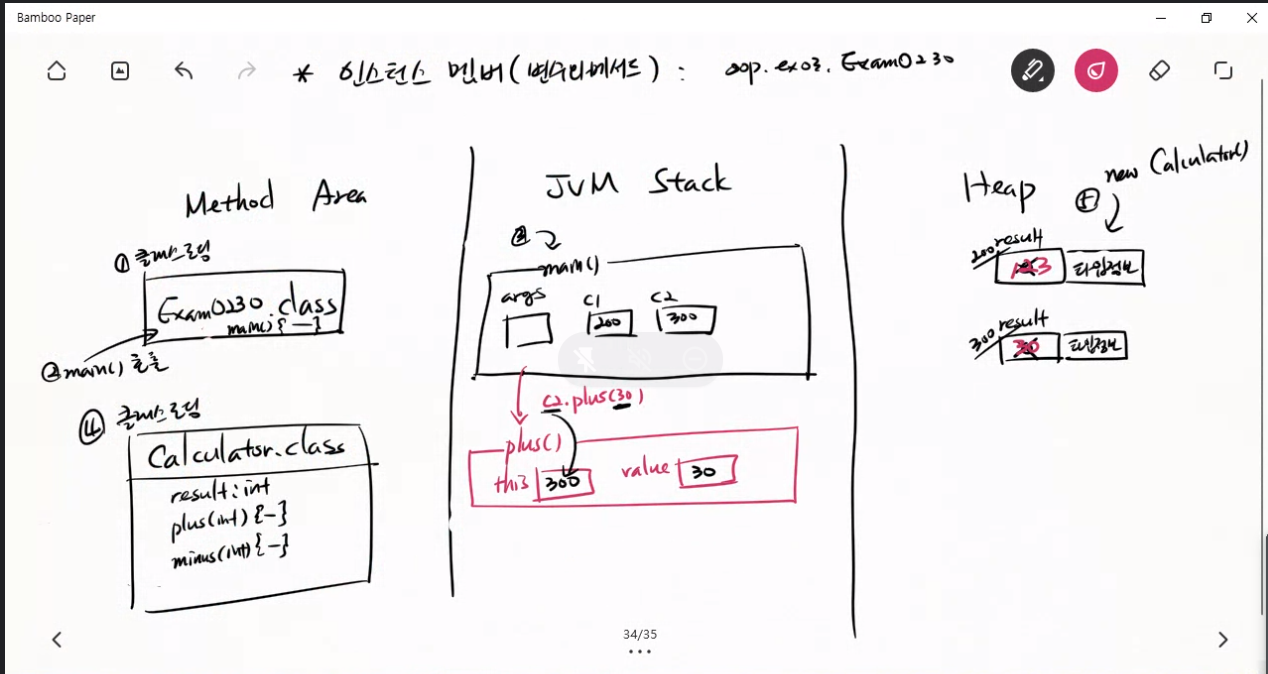 Bamboo Paper
* 인스턴스 멤버(변수와메서드) : oop.ex03.Exam0230
Method Area
① 클래스로딩
Exam0230.class
main() {—}
② main() 호출
④ 클래스로딩
Calculator.class
result : int
plus(int) {-}
minus(int) {-}
JVM Stack
③
main()
args c1 c2
200 300
c2.plus(30)
plus()
this 300 value 30
Heap
⑤ new Calculator()
200 result
타입정보
300 result
30 타입정보
34/35